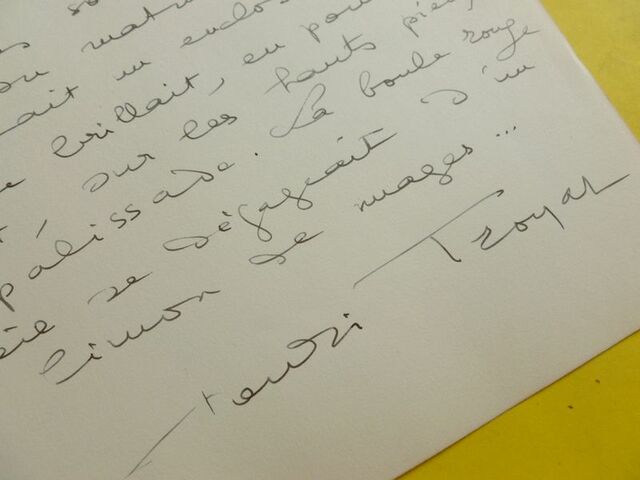 matin
ait un enclos
brillait, en pou
, sur les hauts pieu
palissade. La boule rouge
se dégageait d'un
limon de nuages...
Henri Troyat